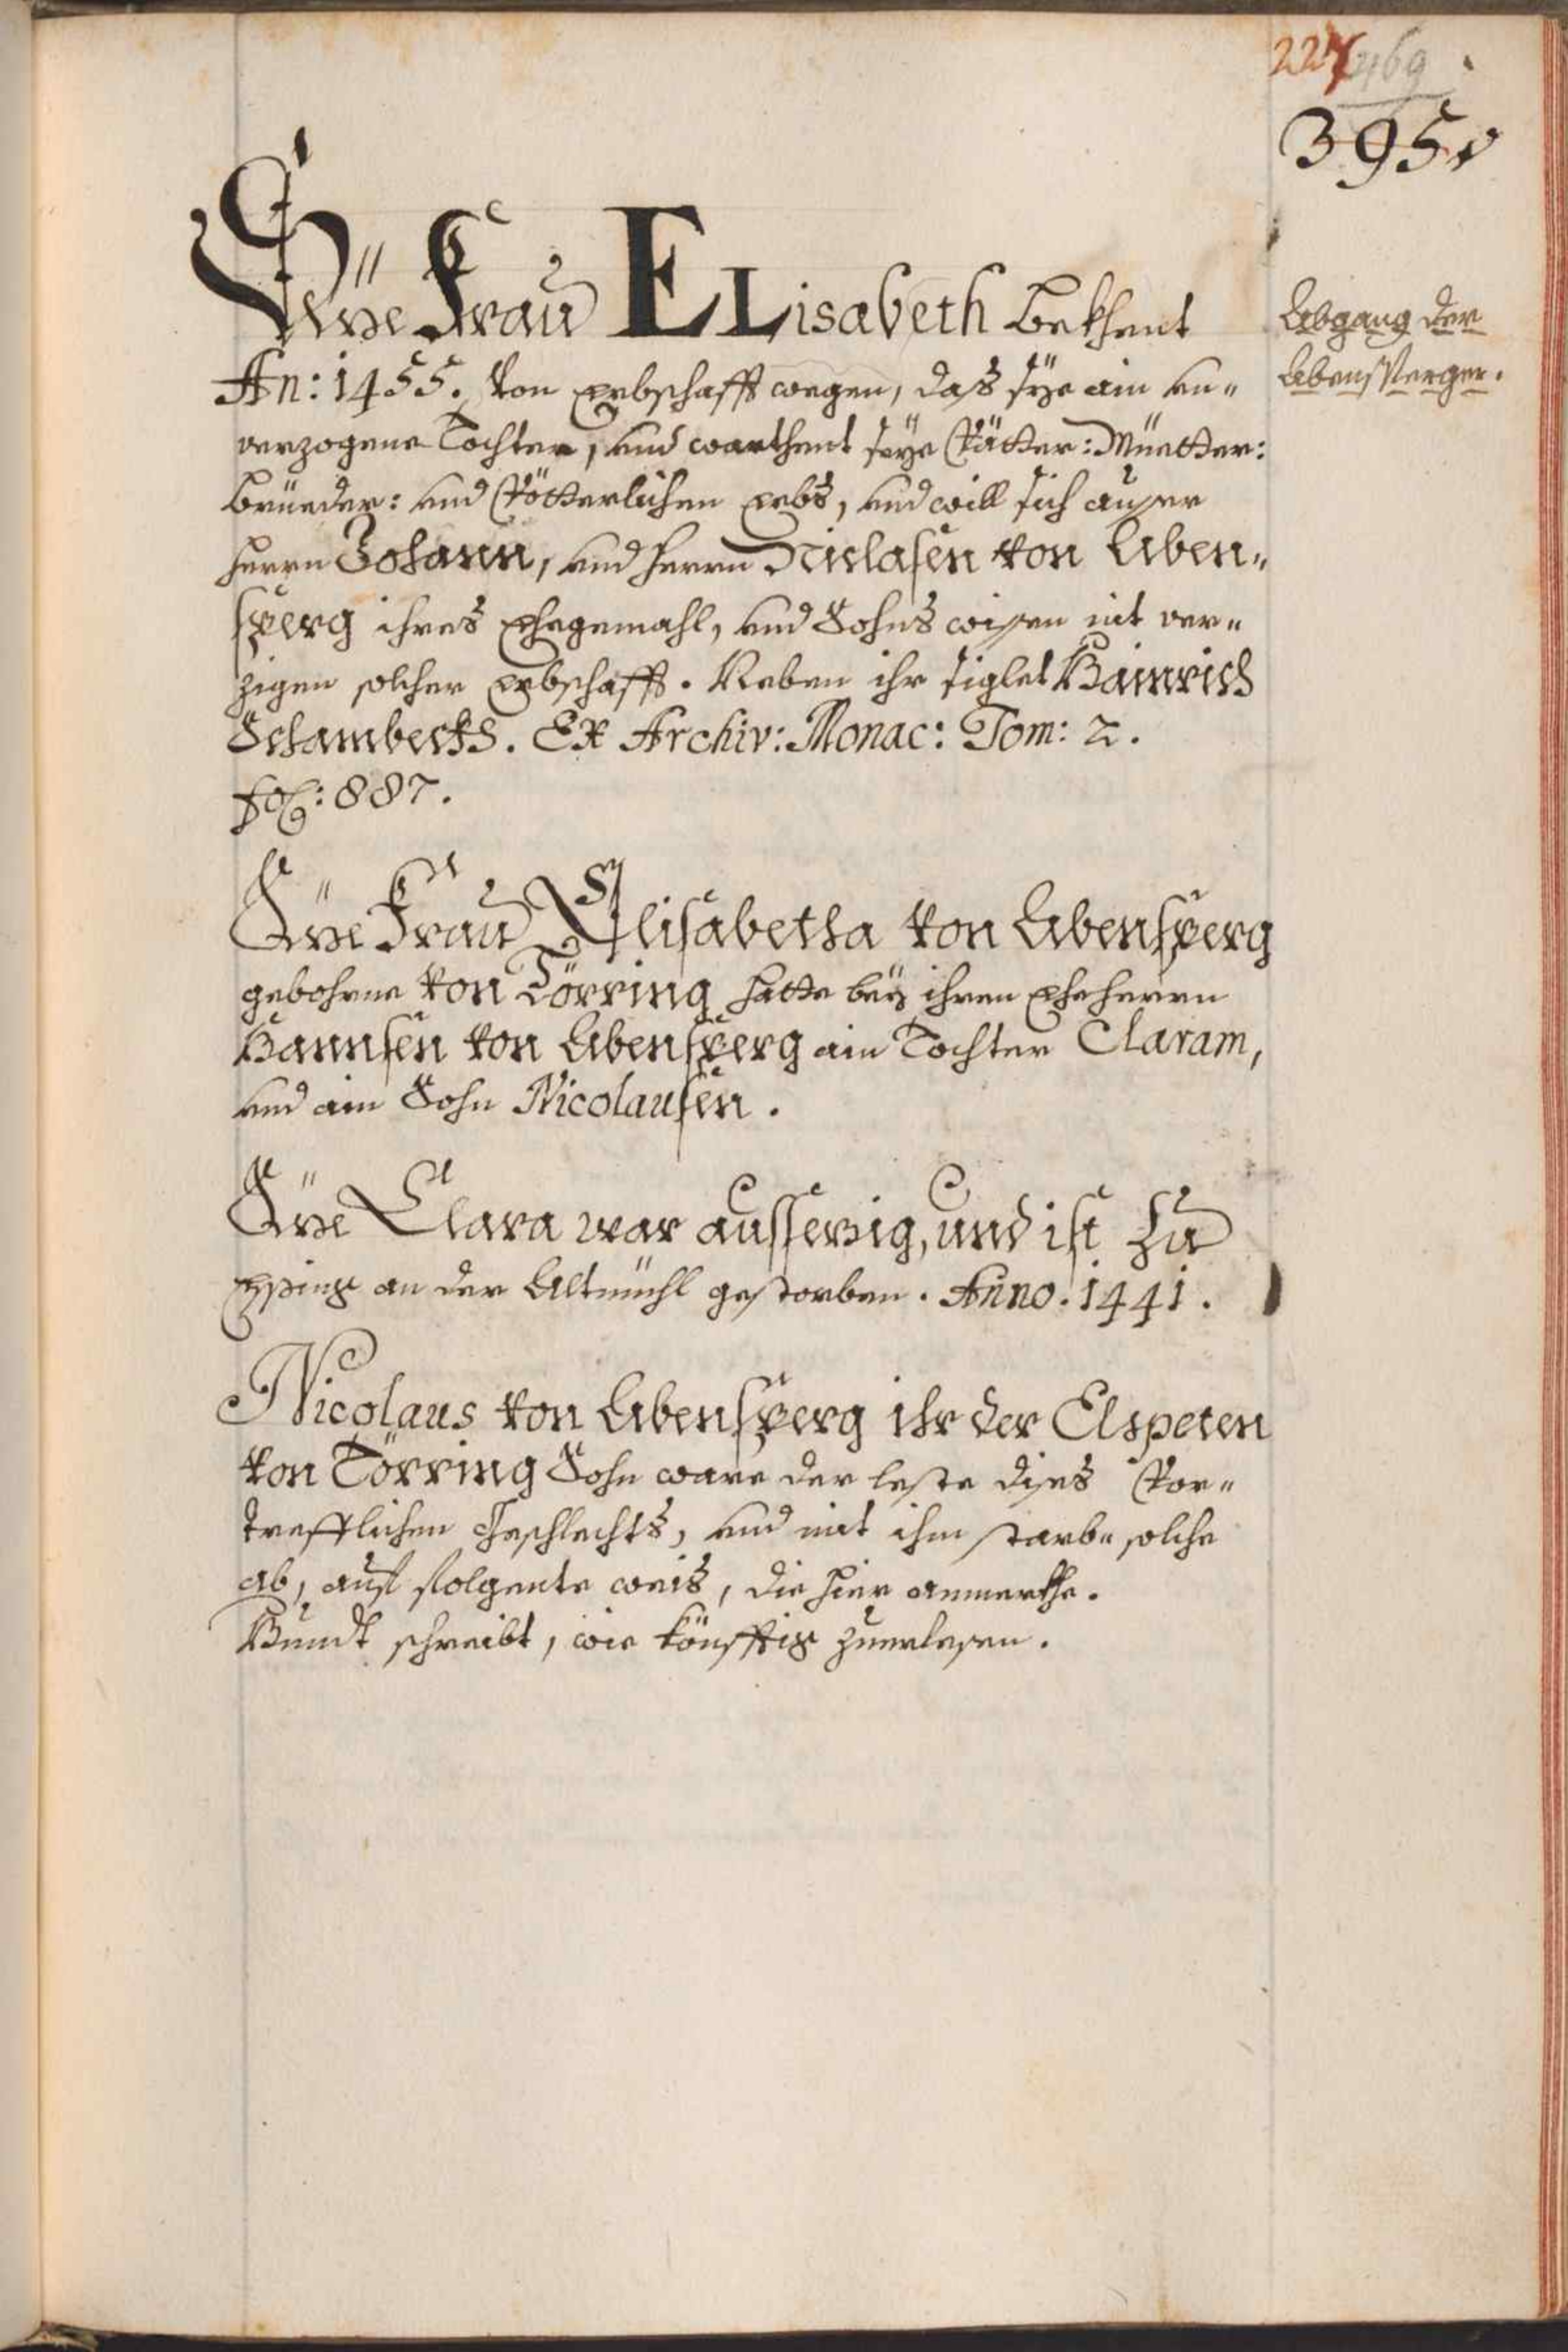 227 469
395.
Abgang der
Abensperger.
Dise Frau ELisabeth bekhent
An: 1455. von erbschafft wegen, das sye ain un-
verzogene Tochter, und warthent seye Vätter: Müetter:
Brüeder: und Vötterlichen erbs, und will sich ausser
Herrn Johann, und Herrn Niclasen von Aben-
sperg ihres Ehegemahl, und Sohns wissen nit ver-
zigen solcher Erbschafft. Neben ihr siglet Hainrich
Schambeckh. Ex Archiv: Monac: Tom: 2.
fol: 887.
Dise Frau Elisabetha von Abensperg
gebohrne von Törring hatte bey ihren Eheherrn
Hannsen von Abensperg ain Tochter Claram,
und ain Sohn Nicolausen.
Dise Clara war aussezig, und ist zu
Essing an der Altmühl gestorben. Anno. 1441.
Nicolaus von Abensperg ihr der Elspeten
von Törring Sohn ware der leste dises Vor-
trefflichen Geschlechts, und mit ihm starbe solche
ab, auf folgente weis, die hier anmerkhe.
Hundt schreibt, wie könfftig zuerlesen.